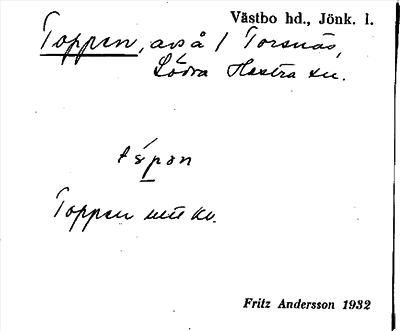 Västbo hd., Jönk. l.
Toppen, avs å / Torsnäs,
Södra Hestra sn.
tópən
Toppen
Fritz Andersson 1932